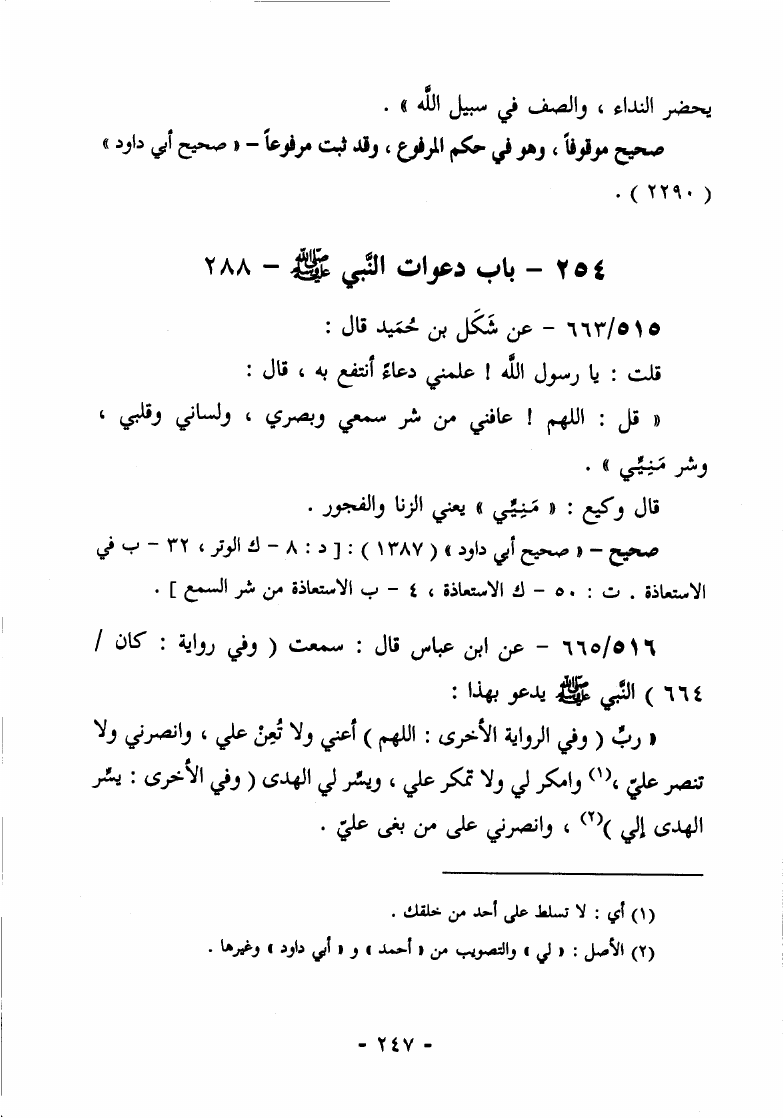 يحضر النداء ، والصف في سبيل اللَّه » .
صحيح موقوفاً ، وهو في حكم المرفوع ، وقد ثبت مرفوعاً – « صحيح أبي داود »
( ٢٢٩٠ ) .
٢٥٤ – باب دعوات النَّبي ﷺ – ٢٨٨
٦٦٣/٥١٥ – عن شَكَل بن حُمَيد قال :
قلت : يا رسول اللَّه ! علمني دعاءً أنتفع به ، قال :
« قل : اللهم ! عافني من شر سمعي وبصري ، ولساني وقلبي ،
وشر مَنِيِّي » .
قال وكيع : « مَنِيِّي » يعني الزنا والفجور .
صحيح – « صحيح أبي داود » ( ١٣٨٧ ) : [ د : ٨ – ك الوتر ، ٣٢ – ب في
الاستعاذة . ت : ٥٠ – ك الاستعاذة ، ٤ – ب الاستعاذة من شر السمع ] .
٦٦٥/٥١٦ – عن ابن عباس قال : سمعت ( وفي رواية : كان /
٦٦٤ ) النَّبي ﷺ يدعو بهذا :
« ربِّ ( وفي الرواية الأخرى : اللهم ) أعني ولا تُعِنْ علي ، وانصرني ولا
تنصر عليّ ،(١) وامكر لي ولا تمكر علي ، ويسِّر لي الهدى ( وفي الأخرى : يسِّر
الهدى إلي )(٢) ، وانصرني على من بغى عليّ .
(١) أي : لا تسلط على أحد من خلقك .
(٢) الأصل : « لي » والتصويب من « أحمد » و « أبي داود » وغيرها .
- ٢٤٧ -